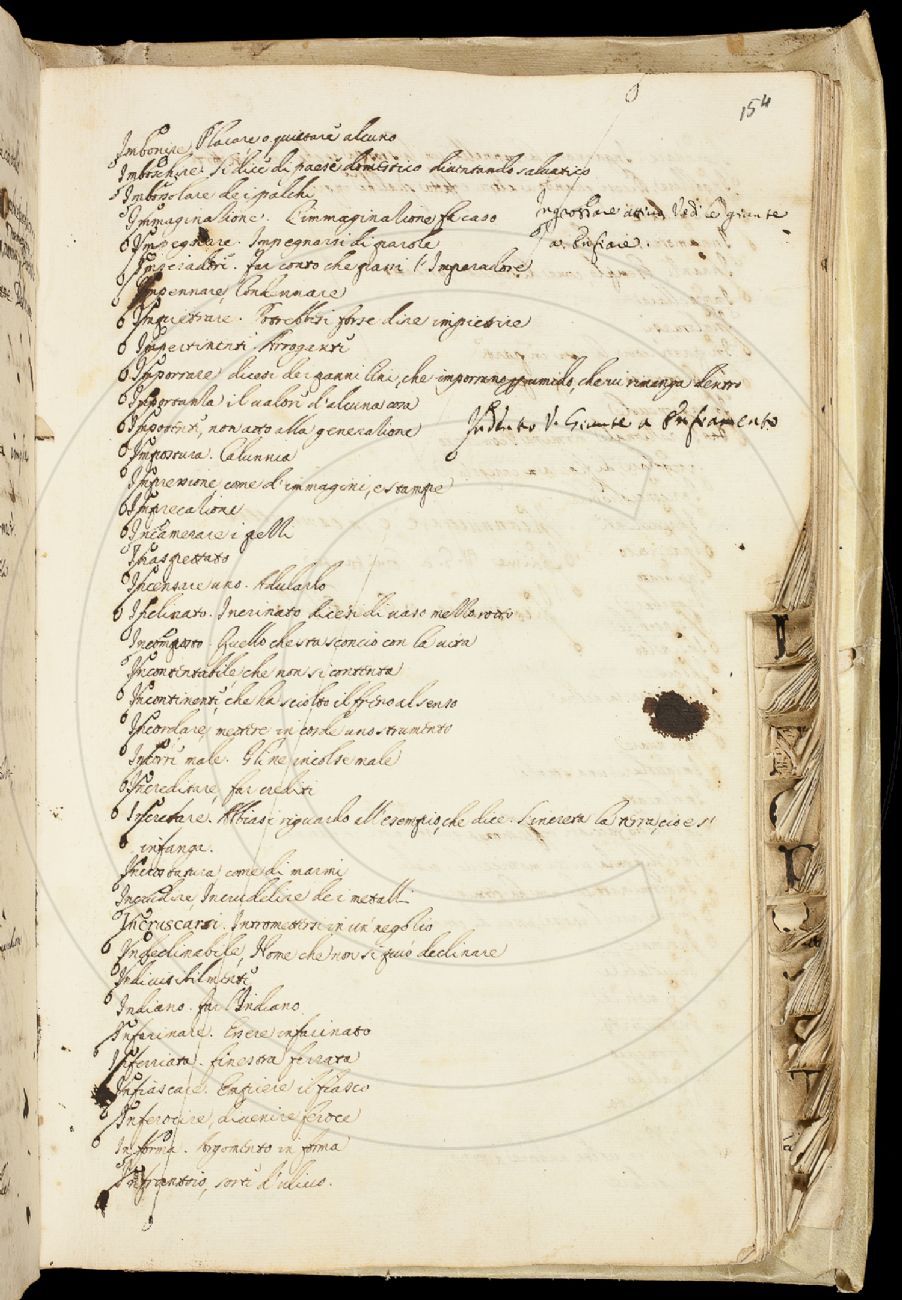 154
Imbonire, Placare o quietare alcuno
Imboschire. Si dice di paese domestico diventando salvatico
Imborsolare dei palchi
Immaginazione. L'immaginazione fa caso
Ingrossare attivo Vedi le giunte
a Enfiare.
Impegnare. Impegnarsi di parole
Imperadore. far conto che passi l'Imperadore
Impennare,
Impietrare. Potrebbesi forse dire impietrire
Impertinente. Arrogante
Importare dicesi dei panni lini, che umido, che vi rimanga dentro
Importanza il valore d'alcuna cosa
Impotente, non atto alla generazione
Indento V. Giunte a Enfiamento
Impostura. Calunnia
Impressione come d'immagini, e stampe
Imprecazione
Incamerare i pezzi
Inaspettato
Incensare uno. Adularlo
Inclinato. Incrinato dicesi di vaso mezzo rotto
Incomposto. Quello che sta sconcio con la vita
Incontentabile che non si contenta
Incontinente, che ha sciolto il freno al senso
Incordare, mettere in corde uno strumento
Incorre male. Gli ne incolse male
Increditare, far crediti
Incretare. Abbiasi riguardo all'esempio, che dice. S'increta la terra, cioè s'
infanga.
Incrostatura come di marmi
Incrudire, Incrudelire dei metalli
Incruscarsi. Intromettersi in un negozio
Indeclinabile, Nome che non si può declinare
Indivisibilmente
Indiano. far l'Indiano
Infarinare. Essere infarinato
Inferriata. finestra ferrata
Infiascare. Empiere il fiasco
Inferocire, divenire feroce
In forma. Argomento in forma
Infrantoio, sorte d'ulivo.